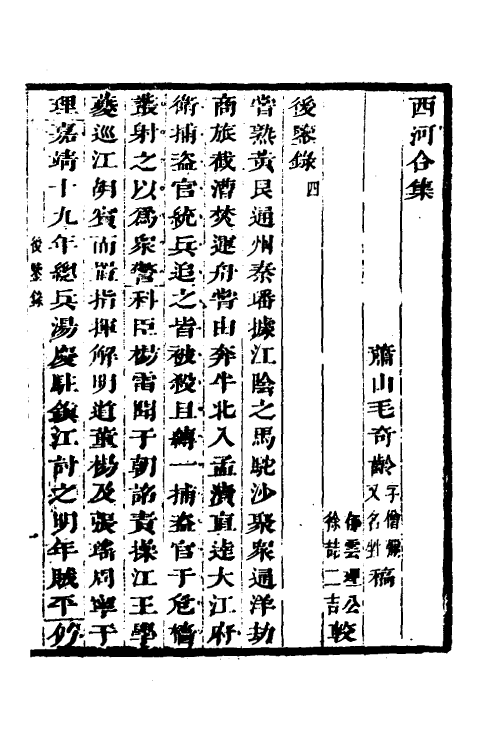 西河合集
蕭山毛奇齡字僧彌又名甡稿
雲理公
徐喆二吉較
後鑒錄四
常熟黃艮通州秦璠據江陰之馬駝沙聚眾通洋劫
商旅截漕焚運舟嘗由奔牛北入孟瀆直達大江府
衛捕盜官統兵追之皆被殺且縛一捕盜官于危檣
叢射之以為眾警科臣楊雷聞于朝詔責操江王學
夔巡江胡賓而指揮解明道董楊及張璠周寧于
理嘉靖十九年總兵湯慶駐鎮江討之明年賊平
後鑒錄